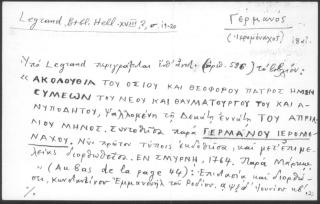 Legrand, Bibl. Hell. XVIII, 2, σ. 19-20
Γερμανός
(Ἱερομόναχος) 18 αἰ.
Ὑπὸ Legrand περιγράφεται ὑπ' ἀριθ. 596 τὸ βιβλίον:
" ΑΚΟΛΟΥΘΙΑ ΤΟΥ ΟΣΙΟΥ ΚΑΙ ΘΕΟΦΟΡΟΥ ΠΑΤΡΟΣ ΗΜΩΝ
ΣΥΜΕΩΝ ΤΟΥ ΝΕΟΥ ΚΑΙ ΘΑΥΜΑΤΟΥΡΓΟΥ ΤΟΥ ΚΑΙ Α-
ΝΥΠΟΔΗΤΟΥ, Ψαλλομένη τῇ Δεκάτῃ ἐννάτῃ ΤΟΥ ΑΠΡΙΛ-
ΛΙΟΥ ΜΗΝΟΣ. Συντεθεῖσα παρὰ ΓΕΡΜΑΝΟΥ ΙΕΡΟΜΟ-
ΝΑΧΟΥ. Νῦν πρῶτον τύποις ἐκδοθεῖσα, καὶ μετ' ἐπιμε-
λείας διορθωθεῖσα. ΕΝ ΣΜΥΡΝΗ, 1764. Παρὰ Μάρκῳ
" (Au bas de la page 44): Ἐπιστασίᾳ καὶ διορθώ-
σει, Κωνσταντίνου Ἐμμανουὴλ τοῦ Ῥοδίου. αψξδ' Ἰουνίου κβ'.